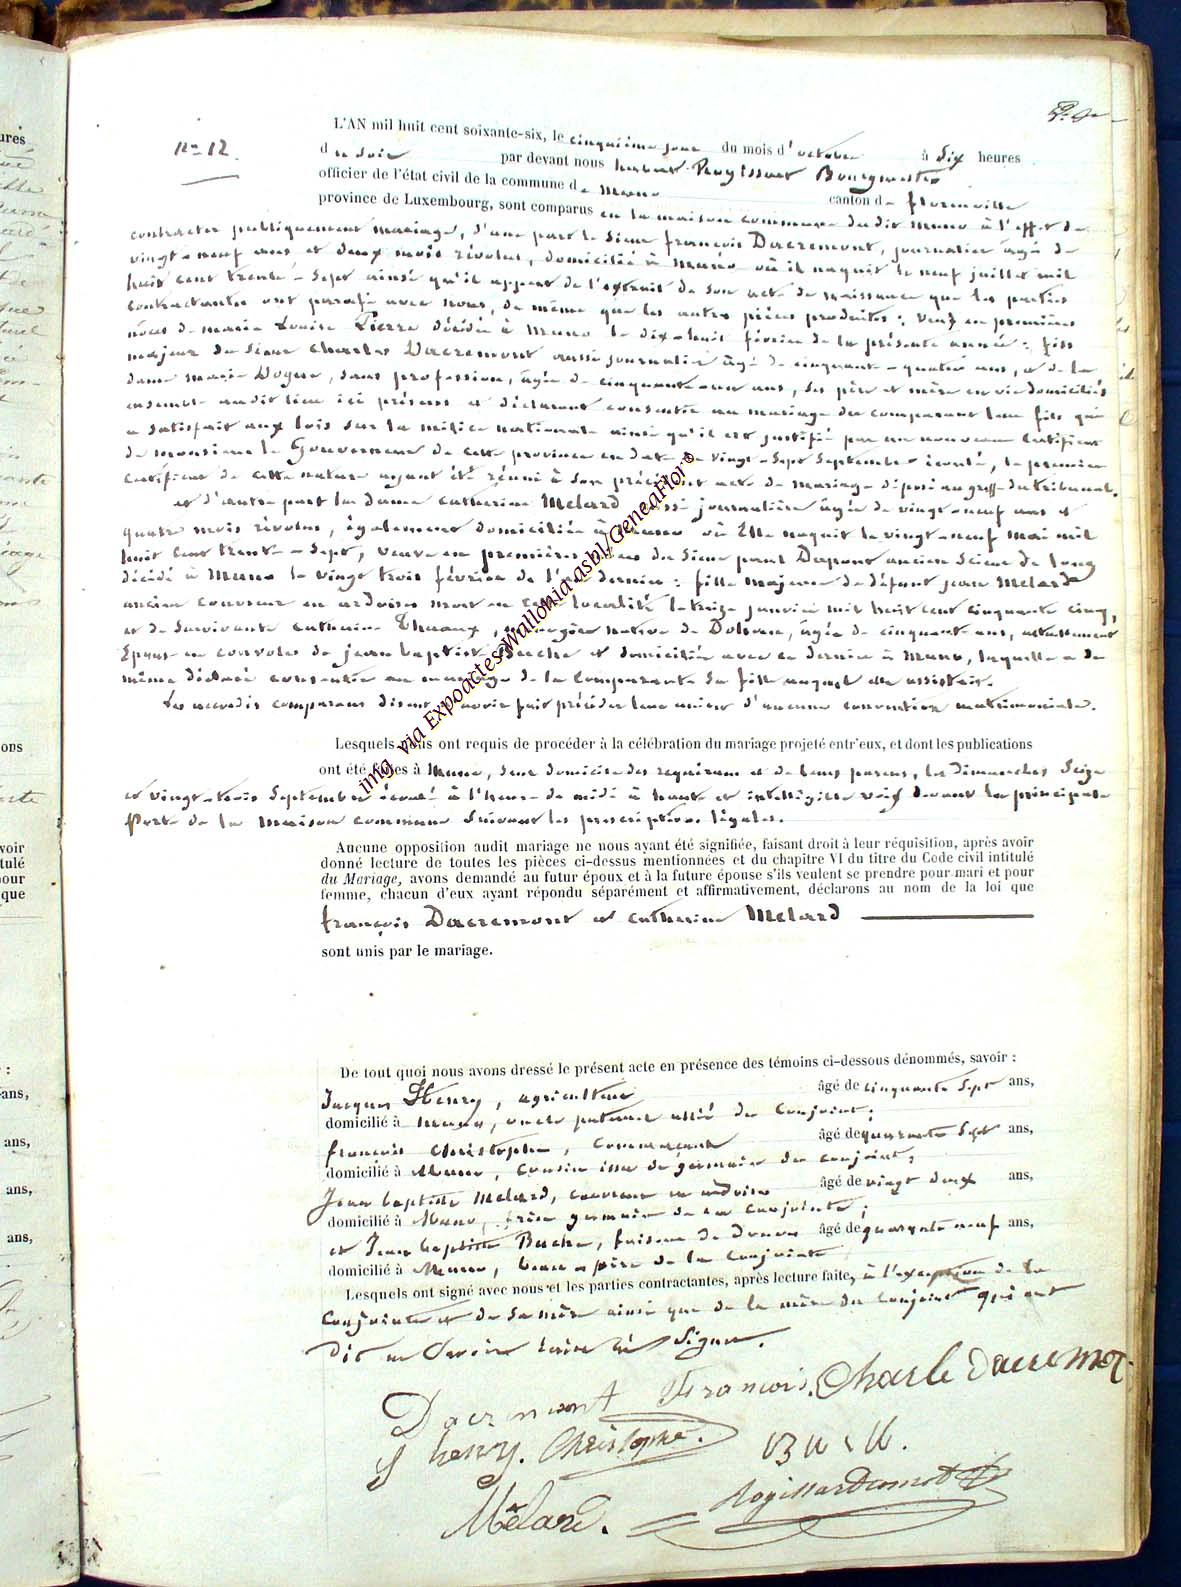 n° 12
L'AN mil huit cent soixante-six, le cinquième jour du mois d'octobre à six heures
du soir par devant nous hubert Bourgmestre
officier de l'état civil de la commune de Muno canton de florenville
province de Luxembourg, sont comparus en la maison commune du dit Muno à l'effet de
contracter publiquement mariage, d'une part le Sieur françois Dacremont, journalier âgé de
vingt-neuf ans, et deux mois révolus, domicilié à Muno où il naquit le neuf juillet mil
huit cent trente-sept ainsi qu'il appert de l'extrait de son acte de naissance que les parties
contractantes ont parafé avec nous, de même que les autres pièces produites; veuf en premières
noces de marie Louise Pierre décédée à Muno le dix-huit février de la présente année; fils
majeur du Sieur Charles Dacremont aussi journalier âgé de cinquante-quatre ans, et de la
dame marie sans profession, âgée de cinquante-un ans, ses père et mère en vie domiciliés
ensemble audit lieu ici présens et déclarant consentir au mariage du comparant leur fils qui
a satisfait aux lois sur la milice nationale ainsi qu'il est justifié par un nouveau certificat
de monsieur le Gouverneur de cette province en date de vingt-sept Septembre écoulé, le premier
certificat de cette nature ayant été réuni à son précédent acte de mariage déposé au greffe du tribunal.
et d'autre part la dame catherine Melard aussi journalière âgée de vingt-neuf ans et
quatre mois révolus, également domiciliée à Muno où Elle naquit le vingt-neuf mai mil
huit cent trente-sept, veuve en premières noces du Sieur paul Dupont ancien Scieur de long
décédé à Muno le vingt trois février de l'an dernier; fille majeure de défunt jean Melard
ancien couvreur en ardoises mort en cette localité le treize janvier mil huit cent cinquante cinq,
et de survivante catherine native de âgée de cinquante ans, actuellement
Epouse en convoles de jean baptiste Buche et domiciliée avec ce dernier à Muno, laquelle a de
même déclaré consentir au mariage de la comparante sa fille auquel elle assistoit.
Les accordés comparans disent n'avoir fait précéder leur union d'aucune convention matrimoniale.
Lesquels nous ont requis de procéder à la célébration du mariage projeté entr'eux, et dont les publications
ont été faites à Muno, seul domicile des requérans et de leurs parens, les dimanches Seize
et vingt-trois Septembre écoulé à l'heure de midi à haute et intelligible voix devant la principale
Porte de la maison commune suivant les prescriptions légales.
Aucune opposition audit mariage ne nous ayant été signifiée, faisant droit à leur réquisition, après avoir
donné lecture de toutes les pièces ci-dessus mentionnées et du chapitre VI du titre du Code civil intitulé
du Mariage, avons demandé au futur époux et à la future épouse s'ils veulent se prendre pour mari et pour
femme, chacun d'eux ayant répondu séparément et affirmativement, déclarons au nom de la loi que
françois Dacremont et catherine Melard
sont unis par le mariage.
De tout quoi nous avons dressé le présent acte en présence des témoins ci-dessous dénommés, savoir :
Jacques Henry, agriculteur âgé de cinquante sept ans,
domicilié à Muno, oncle paternel allié du conjoint;
françois christophe, commerçant âgé de quarante sept ans,
domicilié à Muno, cousin issu de germain du conjoint;
Jean baptiste Melard, couvreur en ardoises âgé de vingt deux ans,
domicilié à Muno, frère germain de la conjointe;
et Jean baptiste Buche, faiseur de âgé de quarante neuf ans,
domicilié à Muno, beau-père de la conjointe
Lesquels ont signé avec nous et les parties contractantes, après lecture faite, à l'exception de la
conjointe et de sa mère ainsi que de la mère du conjoint qui ont
dit ne savoir écrire ni signer.
Dacremont François. Charle dacremot
henry. Christophe.
Mélard.
img via Expoactes-Wallonia asbl/GeneaFlor©